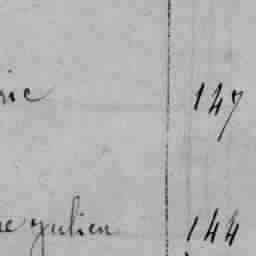 rie 147
re yulien 144